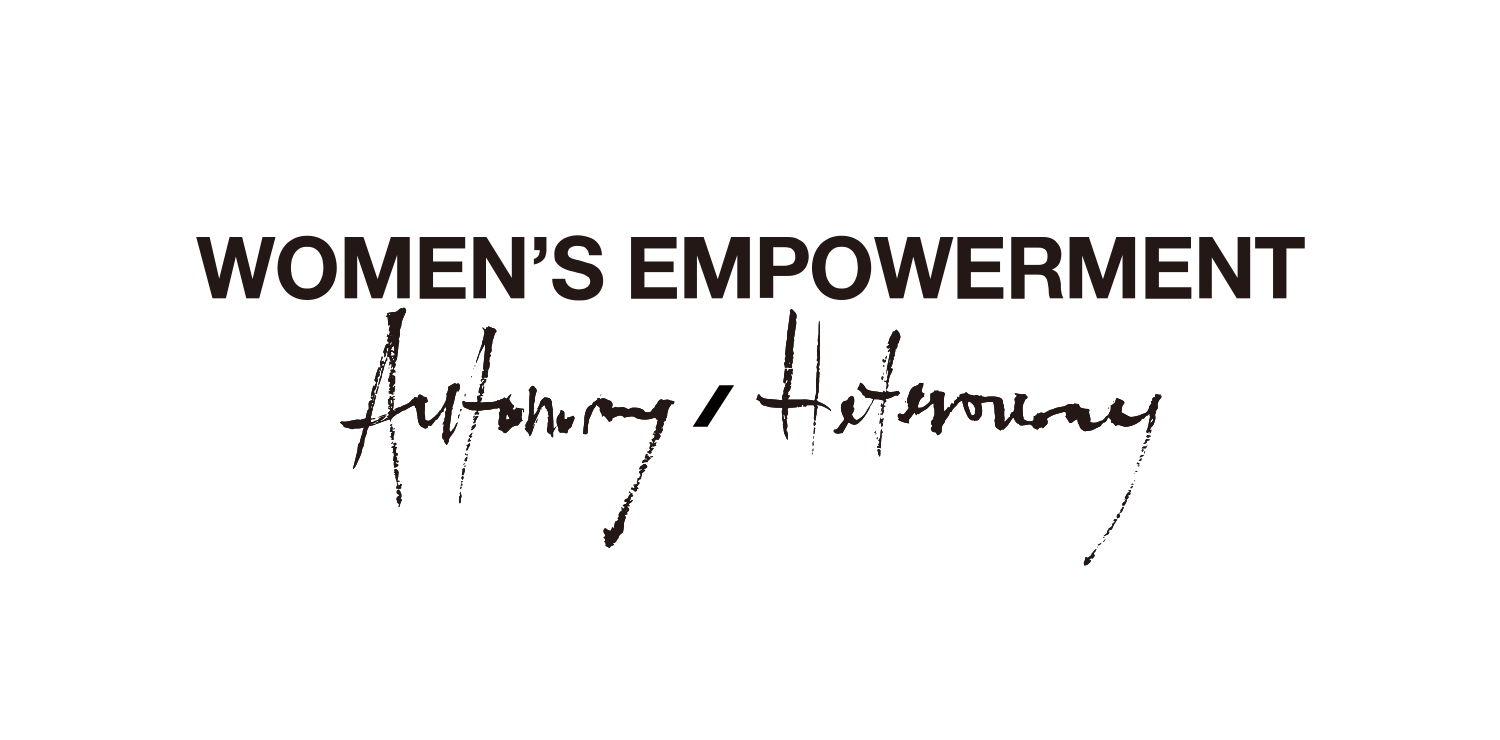 WOMEN’S EMPOWERMENT
Autonomy / Heteronomy